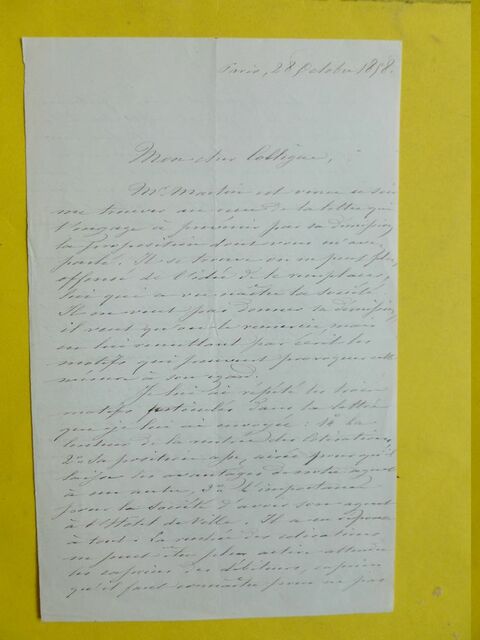 Paris, 28 Octobre 1858.
Mon cher Collègue,
Mr. Martin est venu ce soir
me trouver au reçu de la lettre que
l'engage à prévenir par sa démission
la proposition dont vous m'avez
parlé. Il se trouve on ne peut plus
offensé de l'idée de le remplacer,
lui qui a vu naître la société.
Il ne veut pas donner sa démission,
il veut qu'on le renvoie, mais
en lui remettant par écrit les
motifs qui peuvent provoquer cette
mesure à son égard.
Je lui ai répété les trois
motifs articulés dans la lettre
que je lui ai envoyée : 1o La
lenteur de la rentrée des Cotisations,
2o Sa position aisée pour qu'il
laisse les avantages
à un autre, 3o L'importance
pour la Société d'avoir son agent
à l'Hôtel de Ville. Il a répondu
à tout. La rentrée des cotisations
ne peut être plus active attendu
les caprices des débiteurs, caprices
qu'il faut connaître pour ne pas